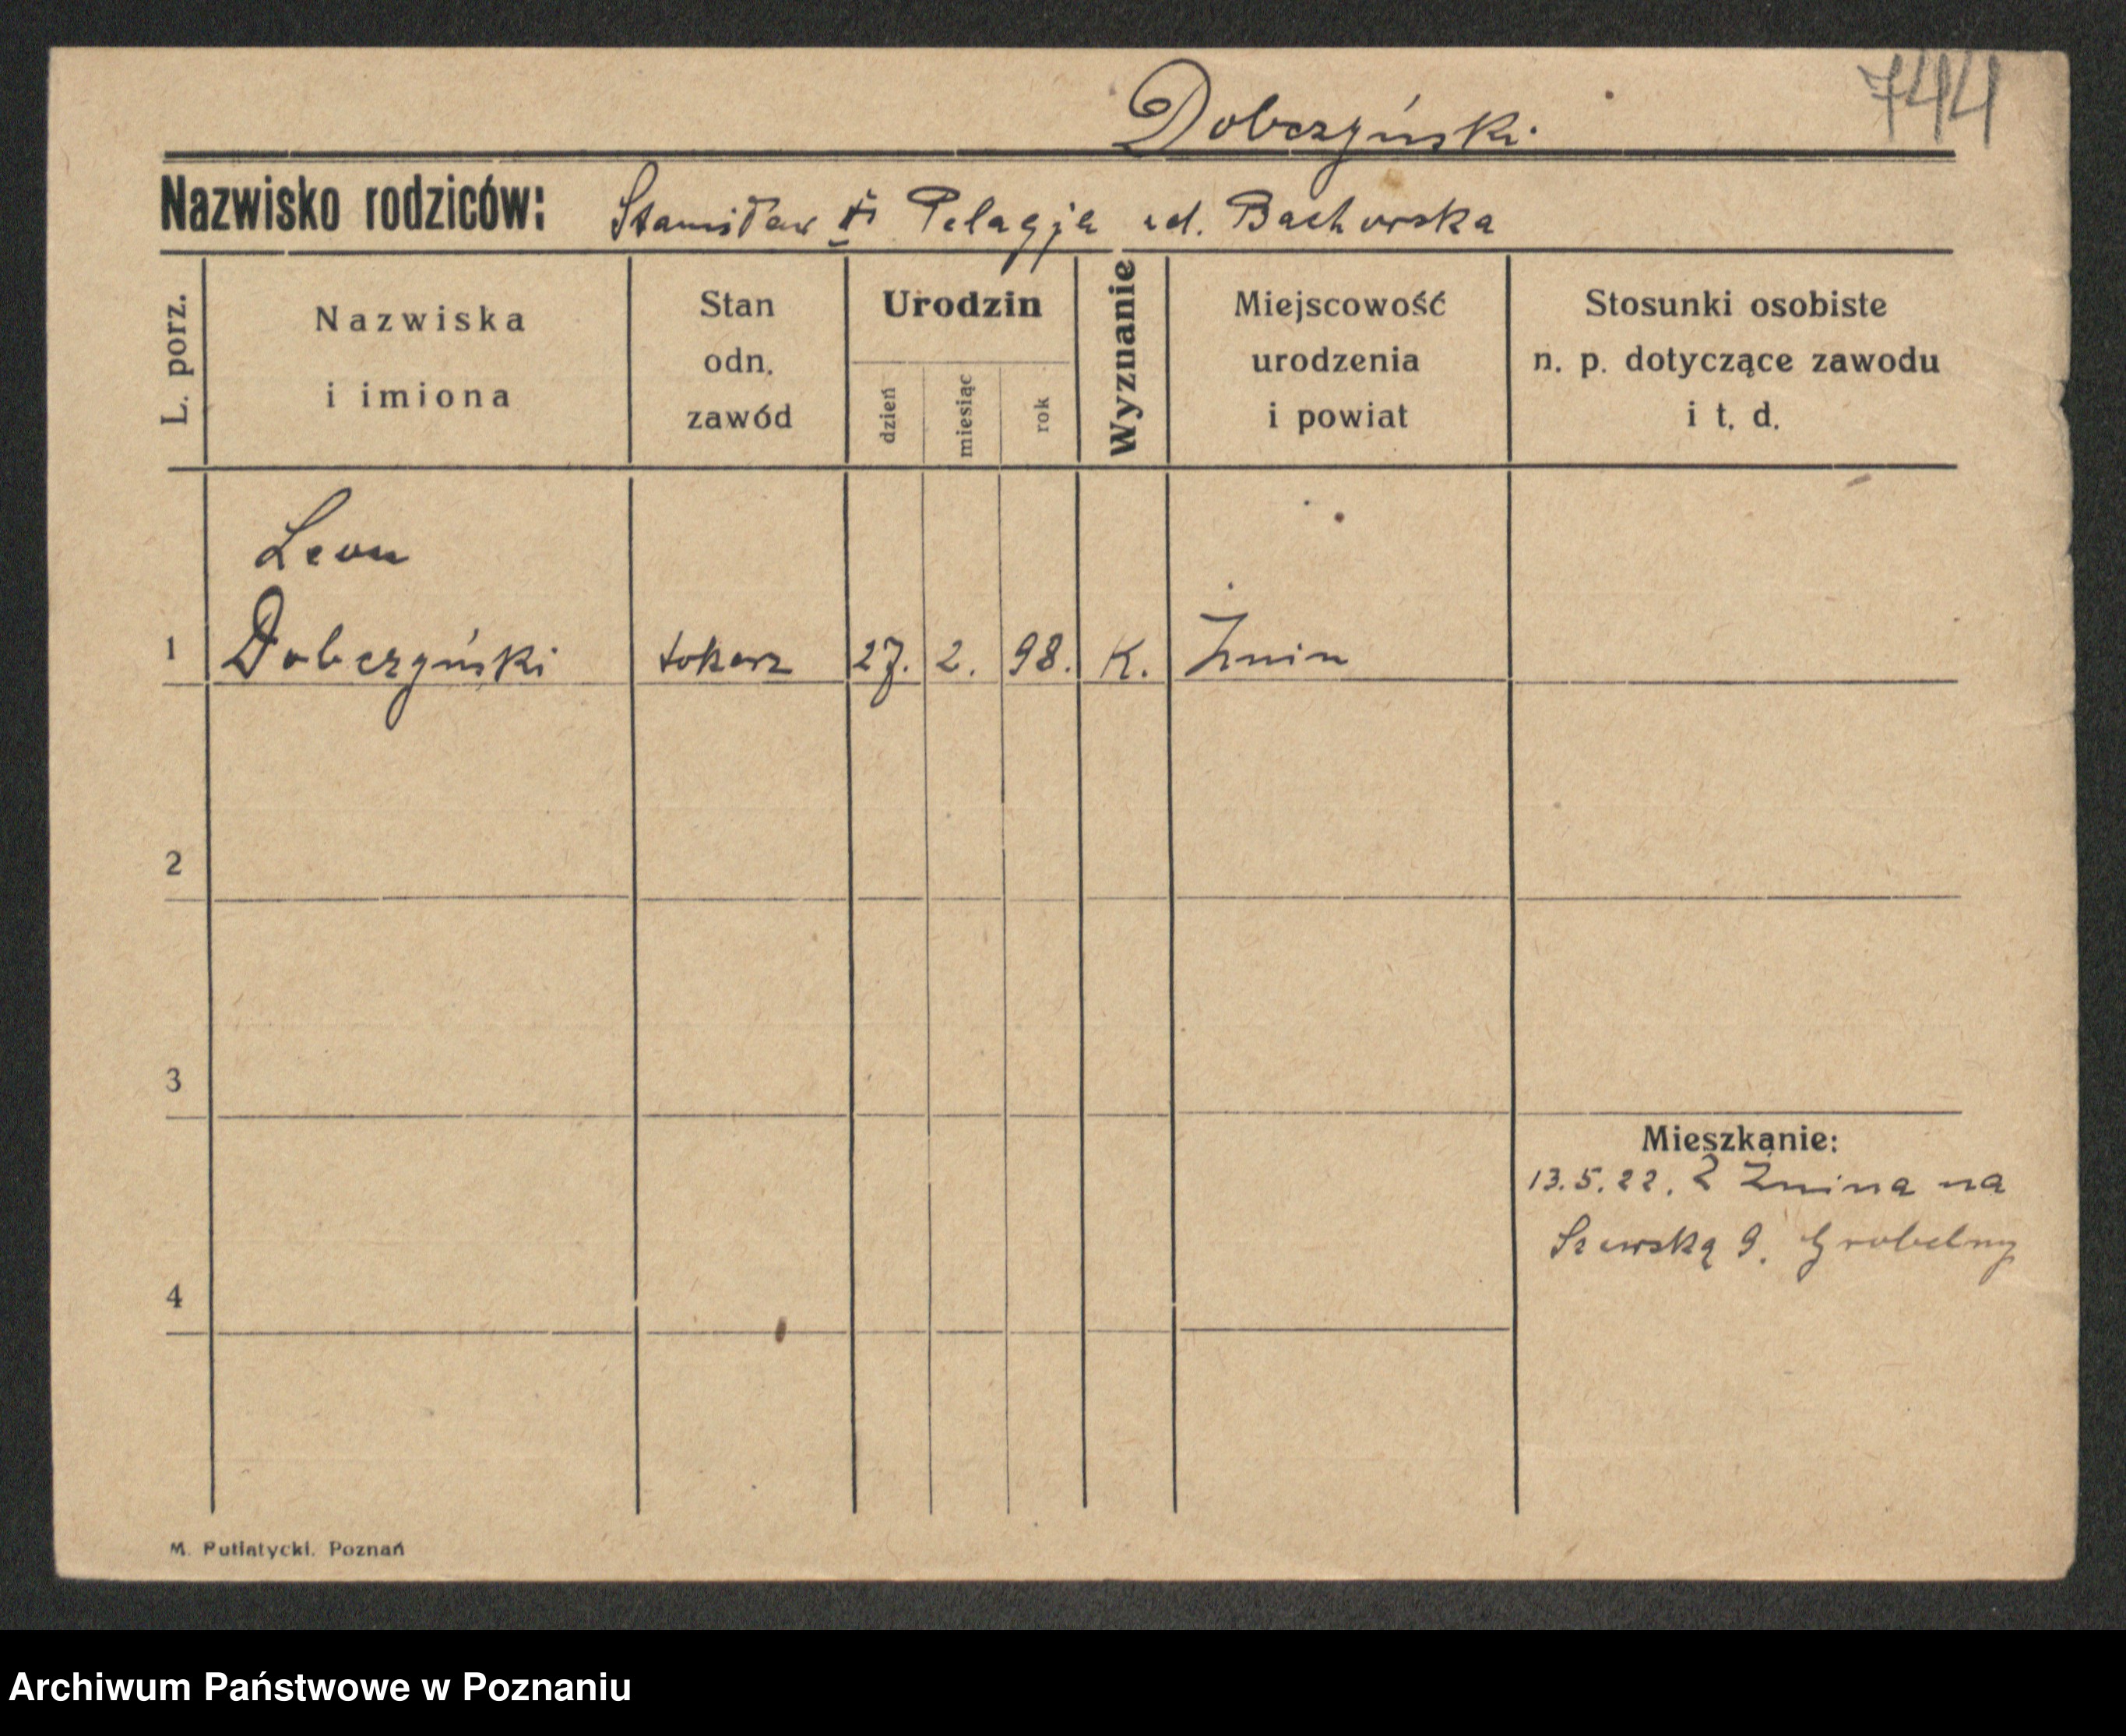 744
Dobczyński
Nazwisko rodziców: Stanisław i Pelagja ud. Bachorska
L. porz.
Nazwiska
i imiona
Stan
odn.
zawód
Urodzin
dzień
miesiąc
rok
Wyznanie
Miejscowość
urodzenia
i powiat
Stosunki osobiste
n. p. dotyczące zawodu
i t. d.
Leon
1 Dobczyński tokarz 27. 2. 98. K. Żnin
2
3
Mieszkanie:
13.5.22. Z Żnina na
Szewską 9. Grobelny
4
M. Putiatycki. Poznań
Archiwum Państwowe w Poznaniu